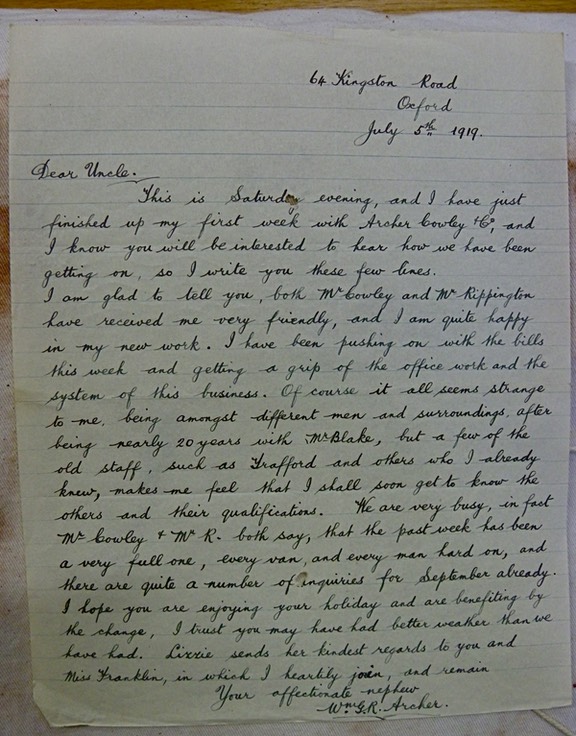 64 Kingston Road
Oxford
July 5th 1919.
Dear Uncle.
This is Saturday evening, and I have just
finished up my first week with Archer Cowley & Co, and
I know you will be interested to hear how we have been
getting on, so I write you these few lines.
I am glad to tell you, both Mr Cowley and Mr Rippington
have received me very friendly, and I am quite happy
in my new work. I have been pushing on with the bills
this week and getting a grip of the office work and the
system of this business. Of course it all seems strange
to me, being amongst different men and surroundings, after
being nearly 20 years with Mr Blake, but a few of the
old staff, such as Trafford and others who I already
knew, makes me feel that I shall soon get to know the
others and their qualifications. We are very busy, in fact
Mr Cowley & Mr R. both say, that the past week has been
a very full one, every van, and every man hard on, and
there are quite a number of inquiries for September already.
I hope you are enjoying your holiday and are benefiting by
the change, I trust you may have had better weather than we
have had. Lizzie sends her kindest regards to you and
Miss Franklin, in which I heartily join, and remain
Your affectionate nephew
Wm G.R. Archer.